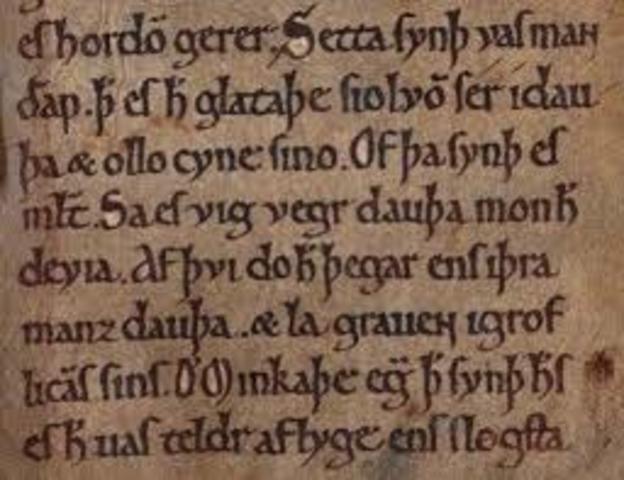 eſ hordō gerer. Setta ſynþ vaſ maɴ
dꝛap. þ̄ eſ h̄ glataþe ſiolvō ſer idau
þa ⁊ ollo cyne ſino. Of þa ſynþ eſ
mł̄t. Sa eſ vig vegr dauþa mon h̄
deyia. Af þvi do h̄ þegar enſ iþra
manz dauþa. ⁊ la graueɴ igrof
licāſ ſinſ. Minkaþe eg̈ þ̄ ſynþ h̄ſ
eſ h̄ uaſ teldr af lyge enſ ſløgſta